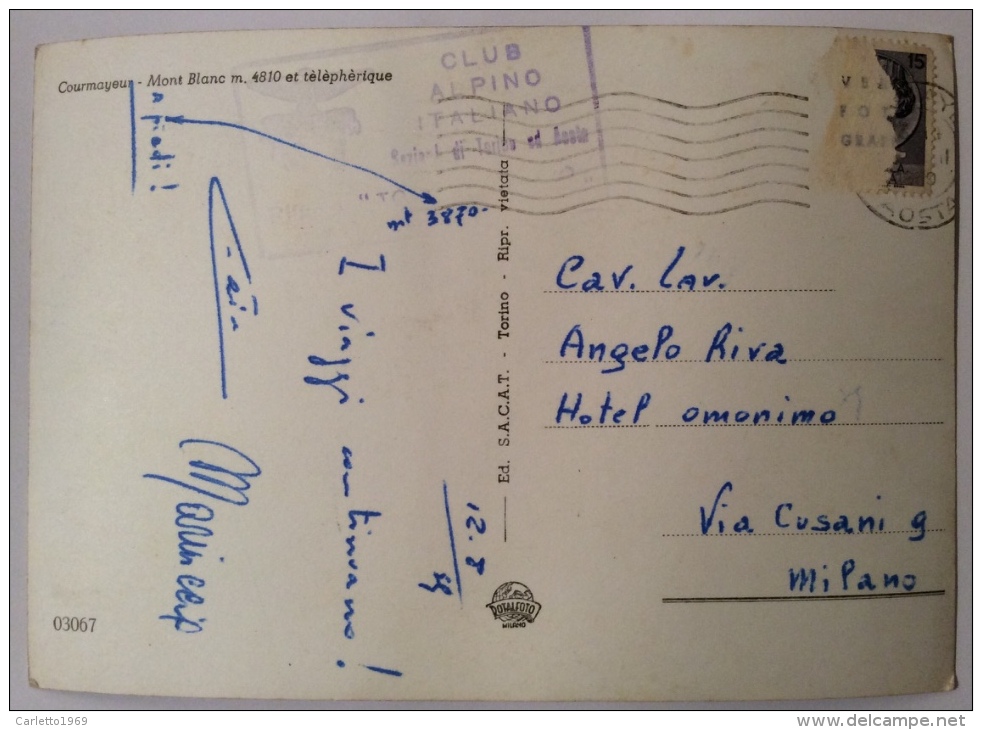 Courmayeur - Mont Blanc m. 4810 et tèlèphèrique
CLUB
ALPINO
ITALIANO
di Torino ed Aosta
15
a piedi!
mt 3870-
I viaggi continuano!
12.8
Cav. Lav.
Angelo Riva
Hotel omonimo
Via Cusani 9
Milano
Ed. S.A.C.A.T. - Torino - Ripr. vietata
ROTALFOTO
MILANO
03067
Carletto1969
www.delcampe.net